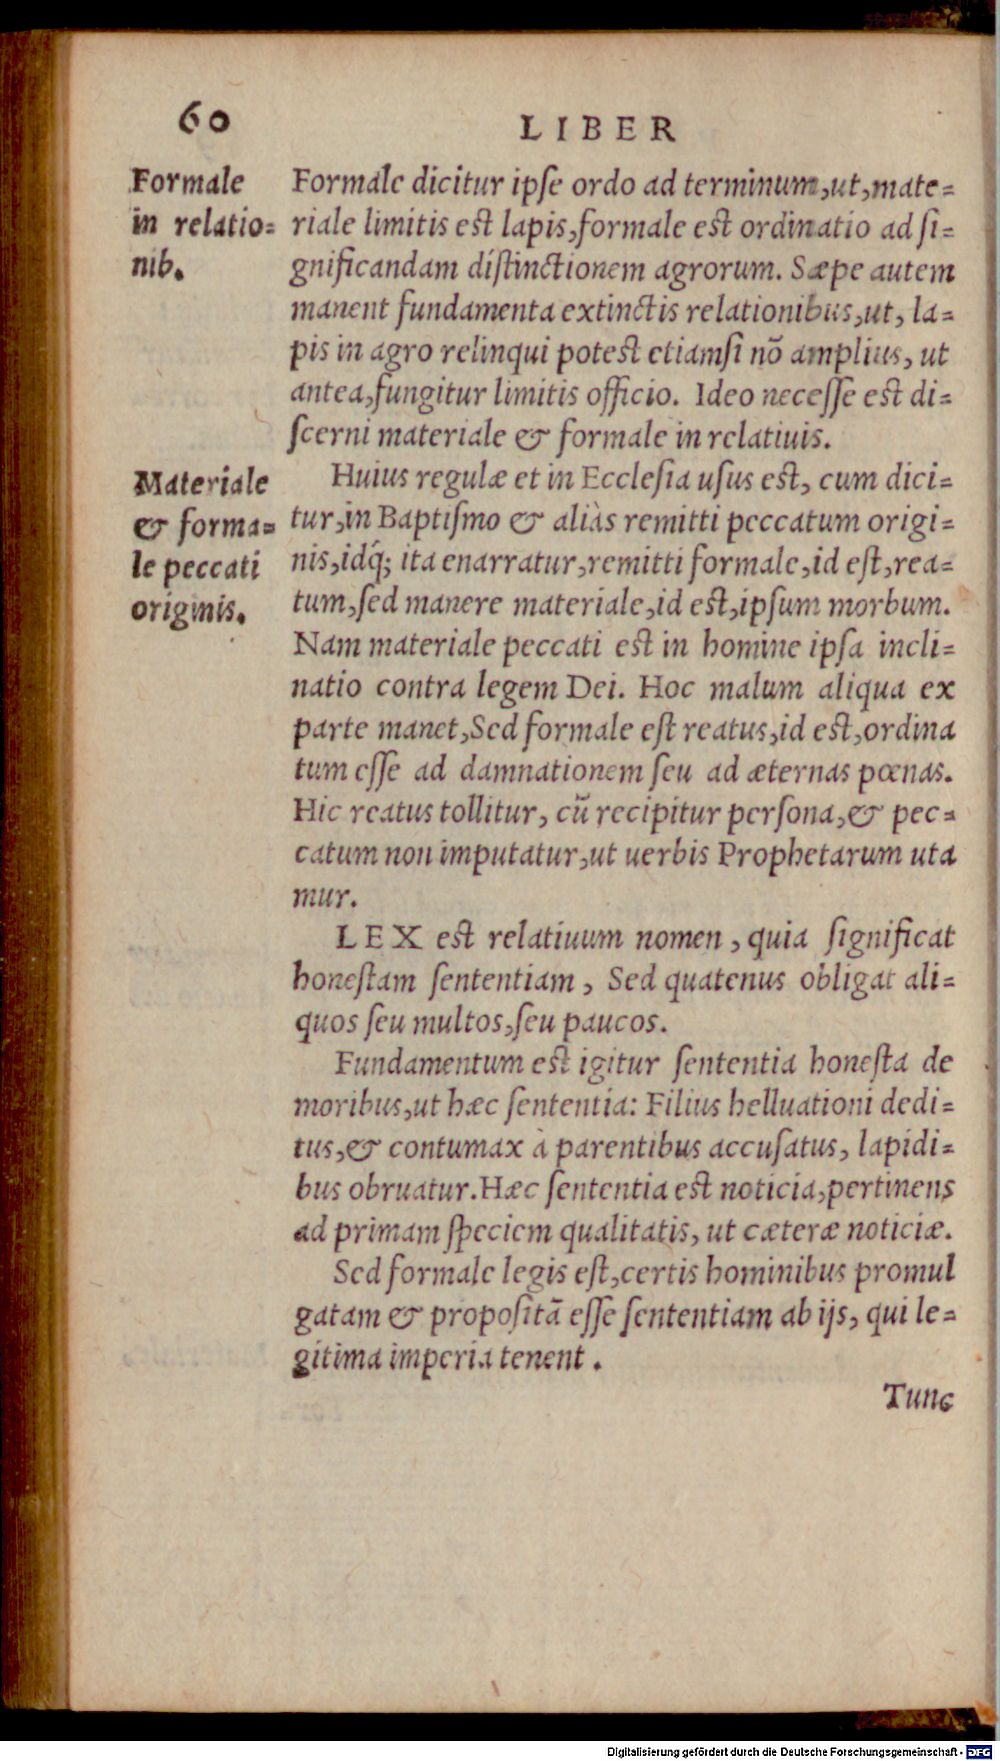 60
LIBER
Formale
in relatio=
nib.
Formale dicitur ipſe ordo ad terminum,ut,mate=
riale limitis est lapis,formale est ordinatio ad ſi=
gnificandam diſtinctionem agrorum. Sæpe autem
manent fundamenta extinctis relationibus,ut, la=
pis in agro relinqui potest etiamſi nõ amplius, ut
antea,fungitur limitis officio. Ideo neceſſe est di=
ſcerni materiale & formale in relatiuis.
Materiale
& forma=
le peccati
originis.
Huius regulæ et in Eccleſia uſus est, cum dici=
tur,in Baptiſmo & aliàs remitti peccatum origi=
nis,idq́; ita enarratur,remitti formale,id eſt,rea=
tum,ſed manere materiale,id est,ipſum morbum.
Nam materiale peccati est in homine ipſa incli=
natio contra legem Dei. Hoc malum aliqua ex
parte manet,Sed formale eſt reatus,id est,ordina
tum eſſe ad damnationem ſeu ad æternas pœnas.
Hic reatus tollitur, cũ recipitur perſona,& pec=
catum non imputatur,ut uerbis Prophetarum uta
mur.
LEX est relatiuum nomen, quia ſignificat
honeſtam ſententiam, Sed quatenus obligat ali=
quos ſeu multos,ſeu paucos.
Fundamentum est igitur ſententia honeſta de
moribus,ut hæc ſententia: Filius helluationi dedi=
tus,& contumax à parentibus accuſatus, lapidi=
bus obruatur.Hæc ſententia est noticia,pertinens
ad primam ſpeciem qualitatis, ut cæteræ noticiæ.
Sed formale legis eſt,certis hominibus promul
gatam & propoſitã eſſe ſententiam ab ijs, qui le=
gitima imperia tenent.
Tunc
Digitalisierung gefördert durch die Deutsche Forschungsgemeinschaft - DFG